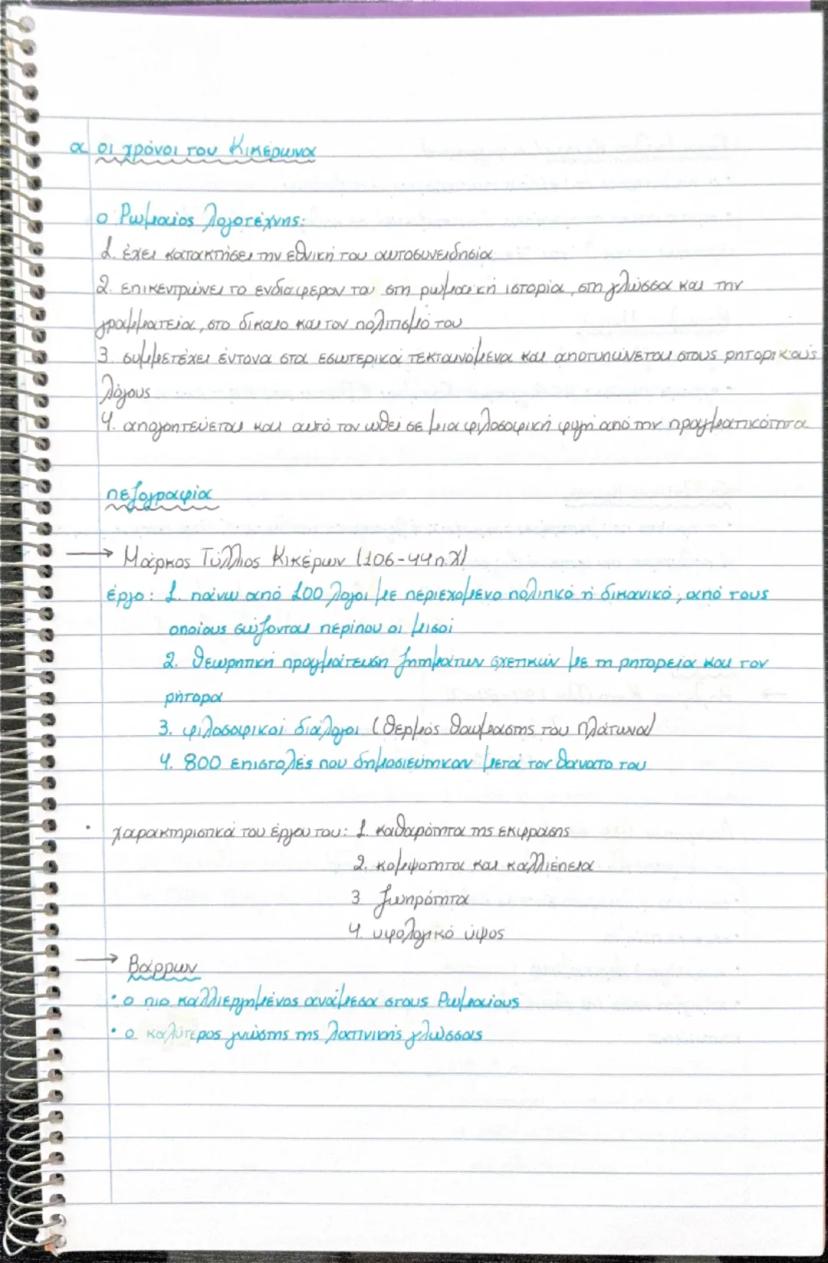 α οι χρόνοι του Κικέρωνα
ο Ρωμαίος λογοτέχνης:
1. έχει κατακτήσει την εθνική του αυτοσυνειδησία
2. επικεντρώνει το ενδιαφέρον του στη ρωμαϊκή ιστορία, στη γλώσσα και την
γραμματεία, στο δίκαιο και τον πολιτισμό του
3. συμμετέχει έντονα στα εσωτερικά τεκταινόμενα και αποτυπώνεται στους ρητορικούς
λόγους
4. απογοητεύεται και αυτό τον ωθεί σε μια φιλοσοφική φυγή από την πραγματικότητα
πεζογραφία
→ Μάρκος Τύλλιος Κικέρων (106-44 π.Χ)
έργο: 1. πάνω από 100 λόγοι με περιεχόμενο πολιτικό ή δικανικό, από τους
οποίους σώζονται περίπου οι μισοί
2. θεωρητική πραγμάτευση ζητημάτων σχετικών με τη ρητορεία και τον
ρήτορα
3. φιλοσοφικοί διάλογοι (θερμός θαυμαστής του Πλάτωνα)
4. 800 επιστολές που δημοσιεύτηκαν μετά τον θάνατο του
· χαρακτηριστικά του έργου του: 1. καθαρότητα της έκφρασης
2. κομψότητα και καλλιέπεια
3 ζωηρότητα
4. υφολογικό ύψος
→ Βάρρων
· ο πιο καλλιεργημένος ανάμεσα στους Ρωμαίους
· ο καλύτερος γνώστης της λατινικής γλώσσας